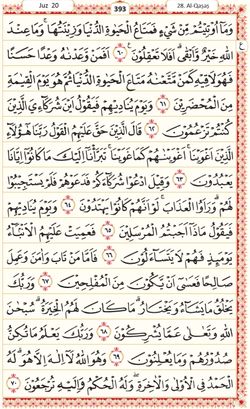 Juz 20 393 28. Al-Qaṣaṣ
وَمَآ أُوتِيتُم مِّن شَىْءٍ فَمَتَٰعُ الْحَيَوٰةِ الدُّنْيَا وَزِينَتُهَا ۚ وَمَا عِندَ
اللّٰهِ خَيْرٌ وَأَبْقَىٰٓ ۚ أَفَلَا تَعْقِلُونَ ٦٠ أَفَمَن وَعَدْنَٰهُ وَعْدًا حَسَنًا
فَهُوَ لَٰقِيهِ كَمَن مَّتَّعْنَٰهُ مَتَٰعَ الْحَيَوٰةِ الدُّنْيَا ثُمَّ هُوَ يَوْمَ الْقِيَٰمَةِ
مِنَ الْمُحْضَرِينَ ٦١ وَيَوْمَ يُنَادِيهِمْ فَيَقُولُ أَيْنَ شُرَكَآءِىَ الَّذِينَ
كُنتُمْ تَزْعُمُونَ ٦٢ قَالَ الَّذِينَ حَقَّ عَلَيْهِمُ الْقَوْلُ رَبَّنَا هَٰٓؤُلَآءِ
الَّذِينَ أَغْوَيْنَآ أَغْوَيْنَٰهُمْ كَمَا غَوَيْنَا ۖ تَبَرَّأْنَآ إِلَيْكَ ۖ مَا كَانُوٓا۟ إِيَّانَا
يَعْبُدُونَ ٦٣ وَقِيلَ ادْعُوا۟ شُرَكَآءَكُمْ فَدَعَوْهُمْ فَلَمْ يَسْتَجِيبُوا۟
لَهُمْ وَرَأَوُا۟ الْعَذَابَ ۚ لَوْ أَنَّهُمْ كَانُوا۟ يَهْتَدُونَ ٦٤ وَيَوْمَ يُنَادِيهِمْ
فَيَقُولُ مَاذَآ أَجَبْتُمُ الْمُرْسَلِينَ ٦٥ فَعَمِيَتْ عَلَيْهِمُ الْأَنۢبَآءُ
يَوْمَئِذٍ فَهُمْ لَا يَتَسَآءَلُونَ ٦٦ فَأَمَّا مَن تَابَ وَءَامَنَ وَعَمِلَ
صَٰلِحًا فَعَسَىٰٓ أَن يَكُونَ مِنَ الْمُفْلِحِينَ ٦٧ وَرَبُّكَ
يَخْلُقُ مَا يَشَآءُ وَيَخْتَارُ ۗ مَا كَانَ لَهُمُ الْخِيَرَةُ ۚ سُبْحَٰنَ
اللّٰهِ وَتَعَٰلَىٰ عَمَّا يُشْرِكُونَ ٦٨ وَرَبُّكَ يَعْلَمُ مَا تُكِنُّ
صُدُورُهُمْ وَمَا يُعْلِنُونَ ٦٩ وَهُوَ اللّٰهُ لَآ إِلَٰهَ إِلَّا هُوَ ۖ لَهُ
الْحَمْدُ فِى الْأُولَىٰ وَالْءَاخِرَةِ ۖ وَلَهُ الْحُكْمُ وَإِلَيْهِ تُرْجَعُونَ ٧٠